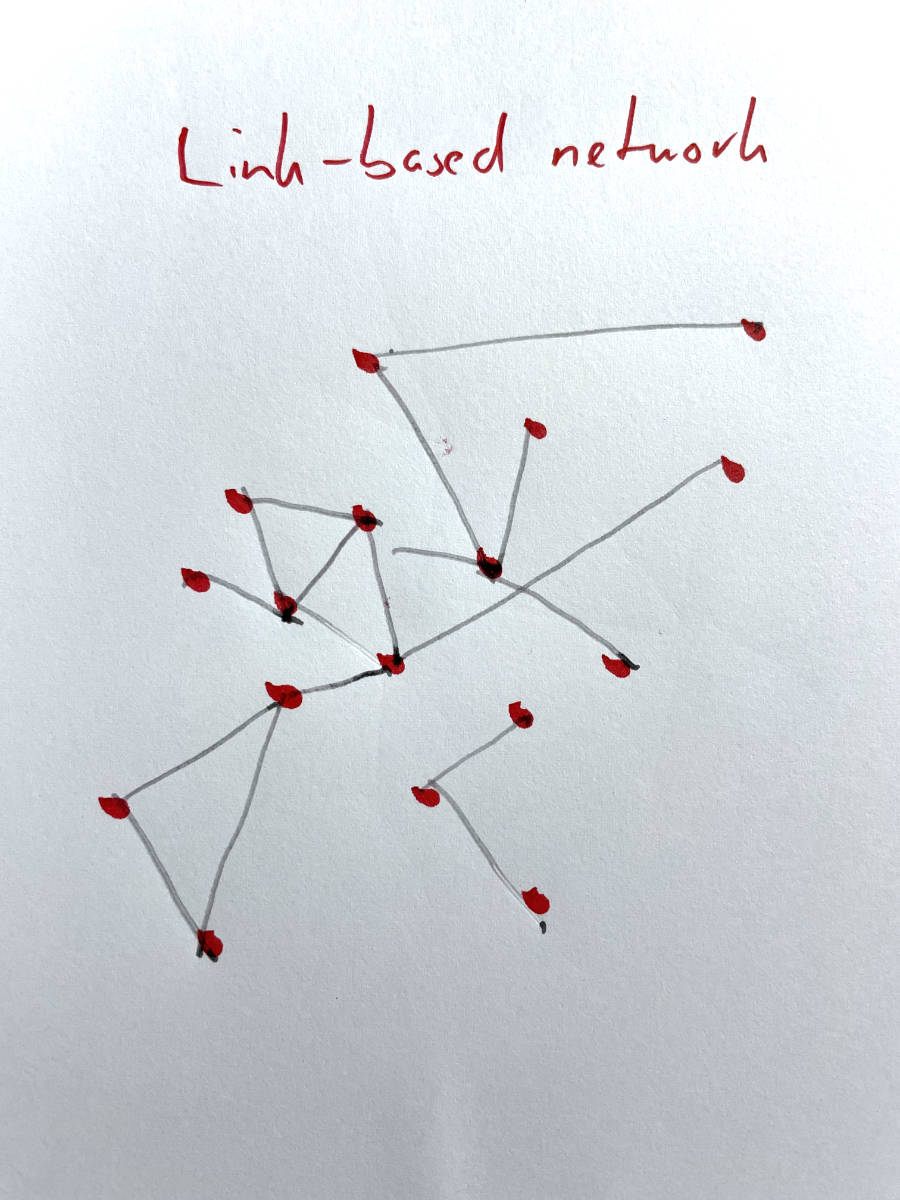 Link-based network